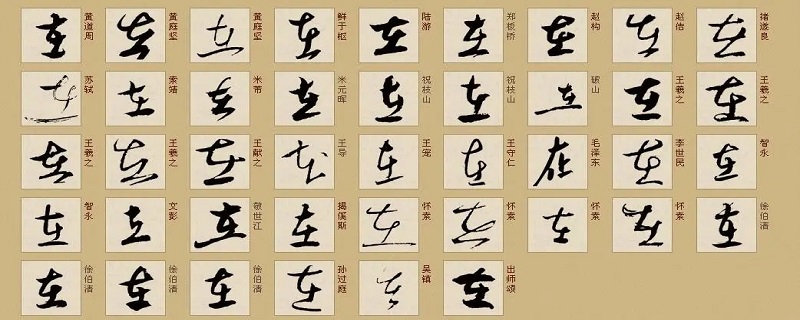 在 黄道周 在 黄庭坚 在 黄庭坚 在 鲜于枢 在 陆游 在 郑板桥 在 赵构 在 赵佶 在 褚遂良
在 苏轼 在 索靖 在 米芾 在 米元晖 在 祝枝山 在 祝枝山 在 破山 在 王羲之 在 王羲之
在 王羲之 在 王羲之 在 王献之 在 王导 在 王宠 在 王守仁 在 毛泽东 在 李世民 在 智永
在 智永 在 文彭 在 敬世江 在 揭傒斯 在 怀素 在 怀素 在 怀素 在 怀素 在 徐伯清
在 徐伯清 在 徐伯清 在 徐伯清 在 孙过庭 在 吴镇 在 出师颂